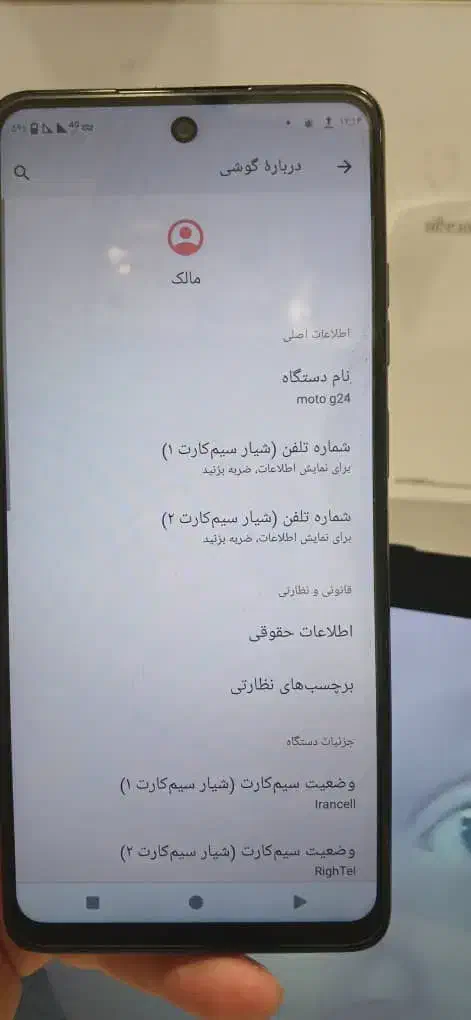 ۱۲:۱۴
4G
۵۹٪
دربارهٔ گوشی
مالک
اطلاعات اصلی
نام دستگاه
moto g24
شماره تلفن (شیار سیم‌کارت ۱)
برای نمایش اطلاعات، ضربه بزنید
شماره تلفن (شیار سیم‌کارت ۲)
برای نمایش اطلاعات، ضربه بزنید
قانونی و نظارتی
اطلاعات حقوقی
برچسب‌های نظارتی
جزئیات دستگاه
وضعیت سیم‌کارت (شیار سیم‌کارت ۱)
Irancell
وضعیت سیم‌کارت (شیار سیم‌کارت ۲)
RighTel